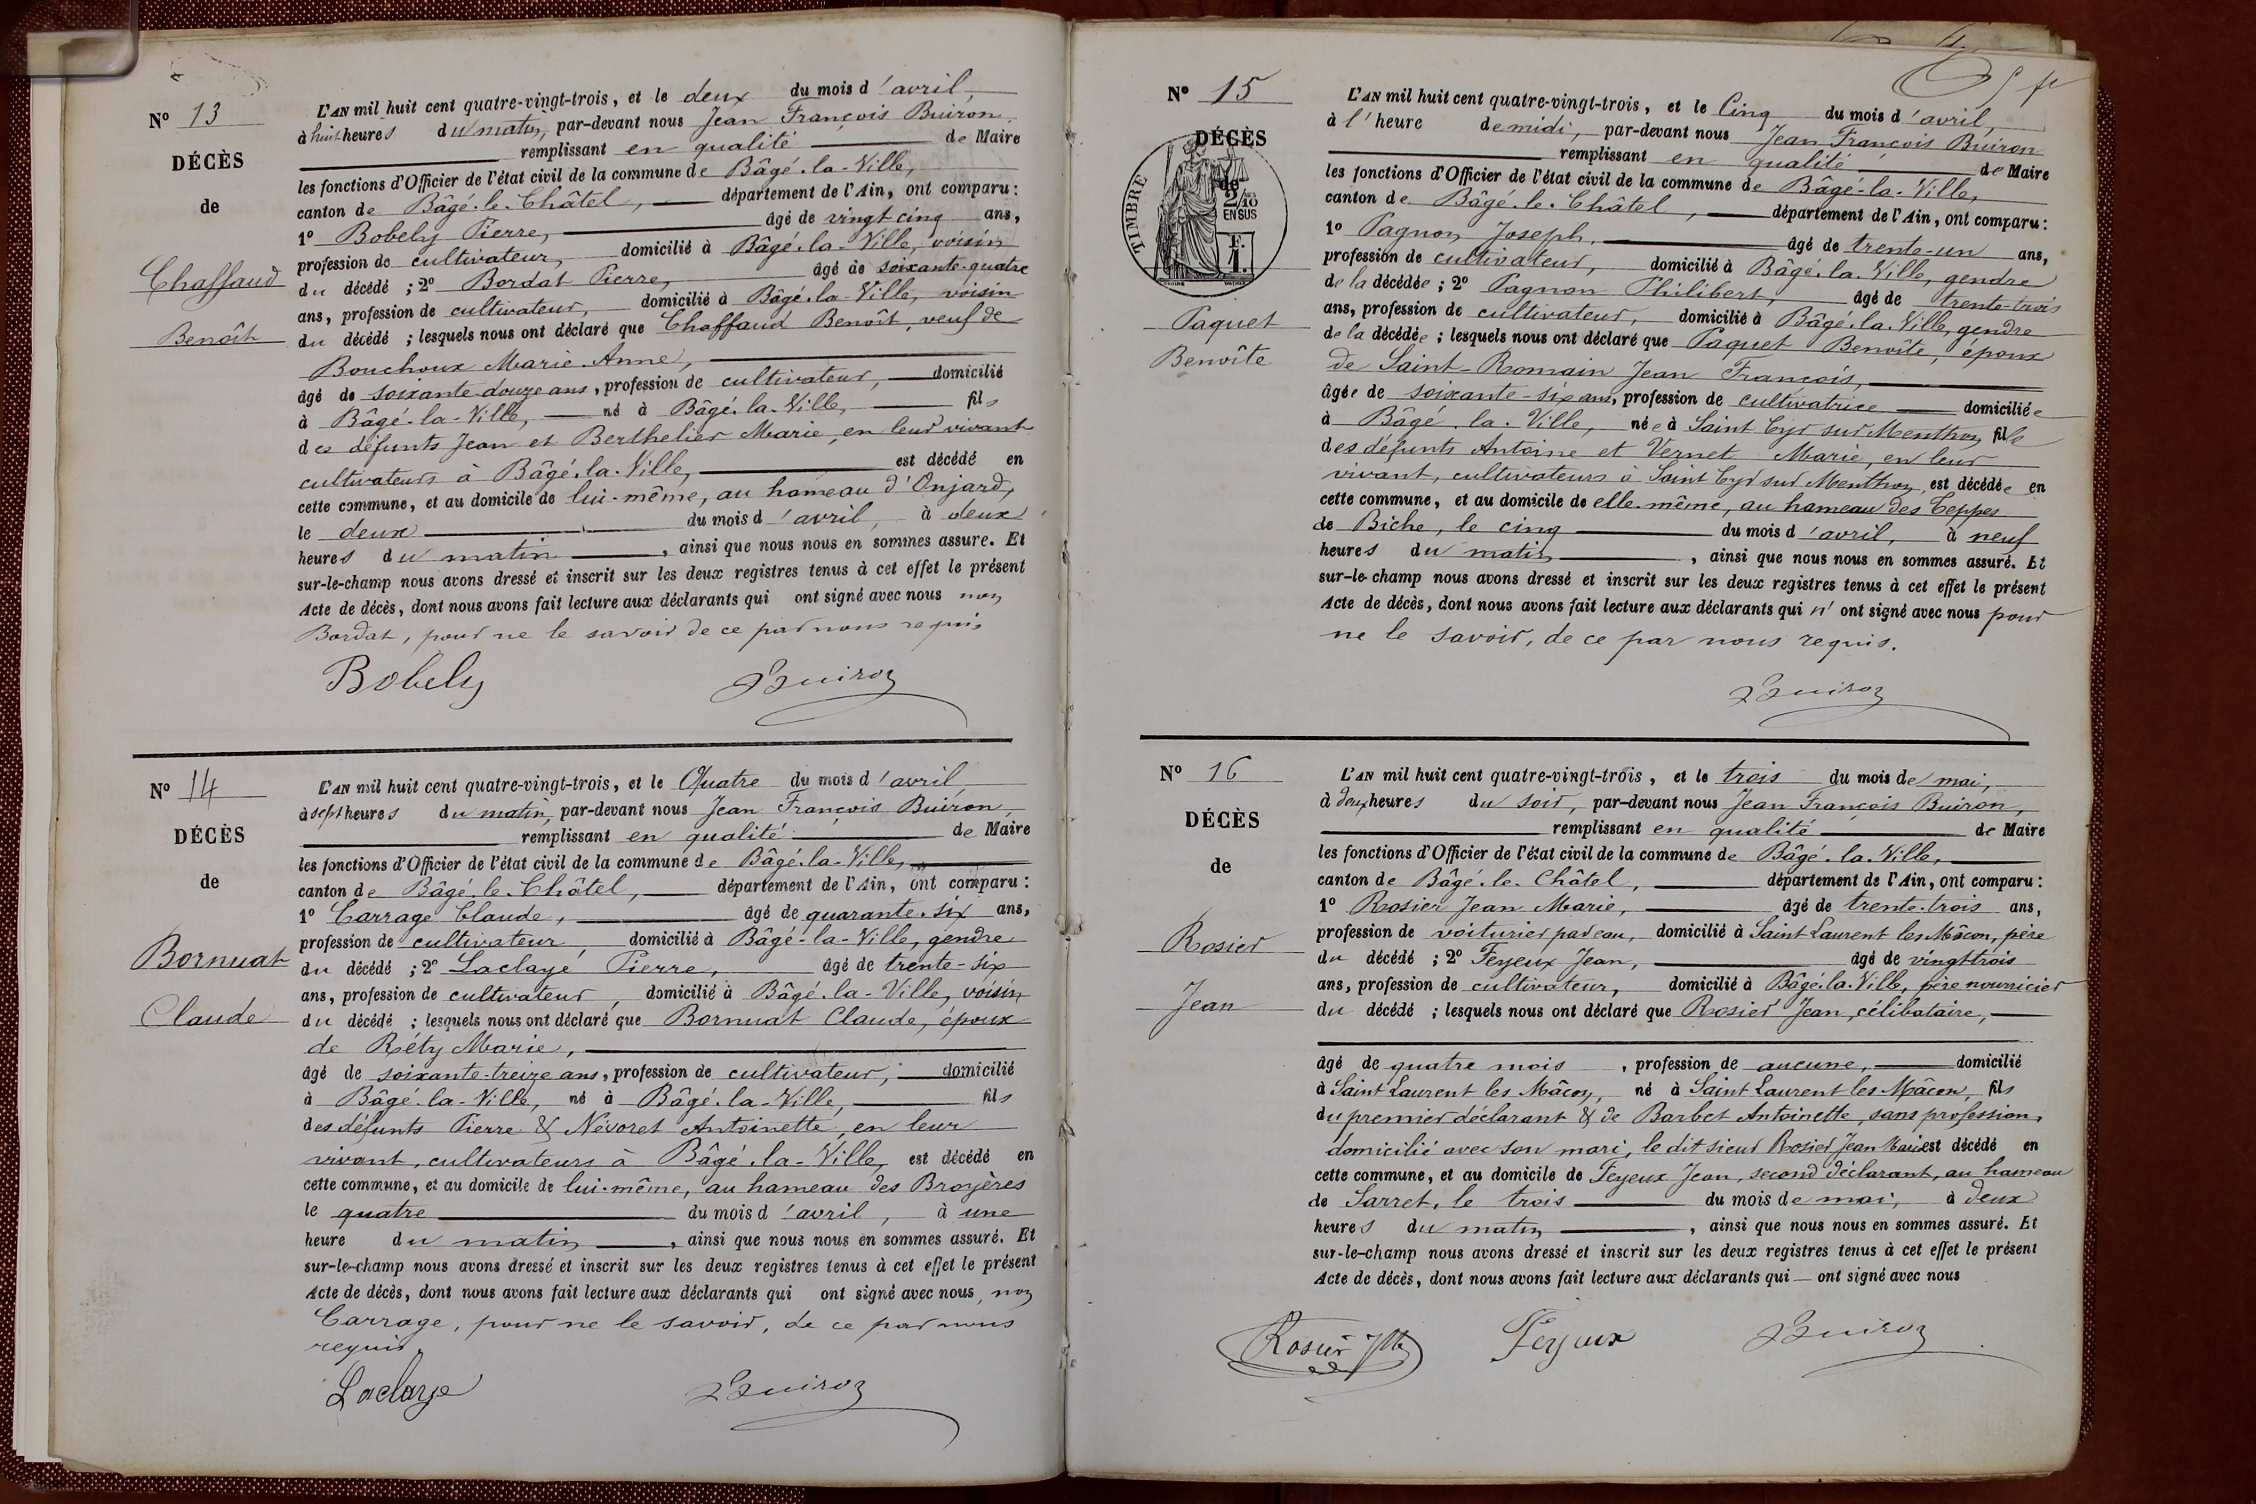 N° 13
DÉCÈS
de
Chaffaud
Benoît
L'AN mil huit cent quatre-vingt-trois, et le deux du mois d'avril,
à huit heures du matin, par-devant nous Jean François Buiron
remplissant en qualité de Maire
les fonctions d'Officier de l'état civil de la commune de Bâgé-la-Ville,
canton de Bâgé-le-Châtel, département de l'Ain, ont comparu :
1° Bobely Pierre, âgé de vingt cinq ans,
profession de cultivateur, domicilié à Bâgé-la-Ville, voisin
du décédé ; 2° Bordat Pierre, âgé de soixante-quatre
ans, profession de cultivateur, domicilié à Bâgé-la-Ville, voisin
du décédé ; lesquels nous ont déclaré que Chaffaud Benoît, veuf de
Bouchoux Marie Anne,
âgé de soixante-douze ans, profession de cultivateur, domicilié
à Bâgé-la-Ville, né à Bâgé-la-Ville, fils
des défunts Jean et Berthelier Marie, en leur vivant
cultivateurs à Bâgé-la-Ville, est décédé en
cette commune, et au domicile de lui-même, au hameau d'Onjard,
le deux du mois d'avril, à deux
heures du matin, ainsi que nous nous en sommes assuré. Et
sur-le-champ nous avons dressé et inscrit sur les deux registres tenus à cet effet le présent
Acte de décès, dont nous avons fait lecture aux déclarants qui ont signé avec nous non
Bordat, pour ne le savoir de ce par nous requis
Bobely Buiron
N° 14
DÉCÈS
de
Bornuat
Claude
L'AN mil huit cent quatre-vingt-trois, et le Quatre du mois d'avril
à sept heures du matin, par-devant nous Jean François Buiron,
remplissant en qualité de Maire
les fonctions d'Officier de l'état civil de la commune de Bâgé-la-Ville,
canton de Bâgé-le-Châtel, département de l'Ain, ont comparu :
1° Carrage Claude, âgé de quarante-six ans,
profession de cultivateur, domicilié à Bâgé-la-Ville, gendre
du décédé ; 2° Laclayé Pierre, âgé de trente-six
ans, profession de cultivateur, domicilié à Bâgé-la-Ville, voisin
du décédé ; lesquels nous ont déclaré que Bornuat Claude, époux
de Réty Marie,
âgé de soixante-treize ans, profession de cultivateur, domicilié
à Bâgé-la-Ville, né à Bâgé-la-Ville, fils
des défunts Pierre & Névoret Antoinette, en leur
vivant, cultivateurs à Bâgé-la-Ville, est décédé en
cette commune, et au domicile de lui-même, au hameau des Broyères
le quatre du mois d'avril, à une
heure du matin, ainsi que nous nous en sommes assuré. Et
sur-le-champ nous avons dressé et inscrit sur les deux registres tenus à cet effet le présent
Acte de décès, dont nous avons fait lecture aux déclarants qui ont signé avec nous, non
Carrage, pour ne le savoir, de ce par nous
requis
Laclaye Buiron
N° 15
DÉCÈS
de
TIMBRE
2/10
EN SUS
F.
1.
Paquet
Benoîte
L'AN mil huit cent quatre-vingt-trois, et le Cinq du mois d'avril,
à l'heure de midi, par-devant nous Jean François Buiron
remplissant en qualité de Maire
les fonctions d'Officier de l'état civil de la commune de Bâgé-la-Ville,
canton de Bâgé-le-Châtel, département de l'Ain, ont comparu :
1° Pagnon Joseph, âgé de trente-un ans,
profession de cultivateur, domicilié à Bâgé-la-Ville, gendre
de la décédée ; 2° Pagnon Philibert, âgé de trente-trois
ans, profession de cultivateur, domicilié à Bâgé-la-Ville, gendre
de la décédée ; lesquels nous ont déclaré que Paquet Benoîte, époux
de Saint-Romain Jean François,
âgée de soixante-six ans, profession de cultivatrice domiciliée
à Bâgé-la-Ville, née à Saint Cyr sur Menthon, fille
des défunts Antoine et Vernet Marie, en leur
vivant, cultivateurs à Saint Cyr sur Menthon, est décédée en
cette commune, et au domicile de elle-même, au hameau des Teppes
de Biche, le cinq du mois d'avril, à neuf
heures du matin, ainsi que nous nous en sommes assuré. Et
sur-le-champ nous avons dressé et inscrit sur les deux registres tenus à cet effet le présent
Acte de décès, dont nous avons fait lecture aux déclarants qui n'ont signé avec nous pour
ne le savoir, de ce par nous requis.
Buiron
N° 16
DÉCÈS
de
Rosier
Jean
L'AN mil huit cent quatre-vingt-trois, et le trois du mois de mai,
à deux heures du soir, par-devant nous Jean François Buiron,
remplissant en qualité de Maire
les fonctions d'Officier de l'état civil de la commune de Bâgé-la-Ville,
canton de Bâgé-le-Châtel, département de l'Ain, ont comparu :
1° Rosier Jean Marie, âgé de trente-trois ans,
profession de voiturier par eau, domicilié à Saint Laurent les Mâcon, père
du décédé ; 2° Feyeux Jean, âgé de vingt-trois
ans, profession de cultivateur, domicilié à Bâgé-la-Ville, père nourricier
du décédé ; lesquels nous ont déclaré que Rosier Jean, célibataire,
âgé de quatre mois, profession de aucune, domicilié
à Saint Laurent les Mâcon, né à Saint Laurent les Mâcon, fils
du premier déclarant & de Barbet Antoinette, sans profession,
domicilié avec son mari, le dit sieur Rosier Jean Marie est décédé en
cette commune, et au domicile de Feyeux Jean, second déclarant, au hameau
de Sarret, le trois du mois de mai, à deux
heures du matin, ainsi que nous nous en sommes assuré. Et
sur-le-champ nous avons dressé et inscrit sur les deux registres tenus à cet effet le présent
Acte de décès, dont nous avons fait lecture aux déclarants qui ont signé avec nous
Rosier JM Feyeux Buiron